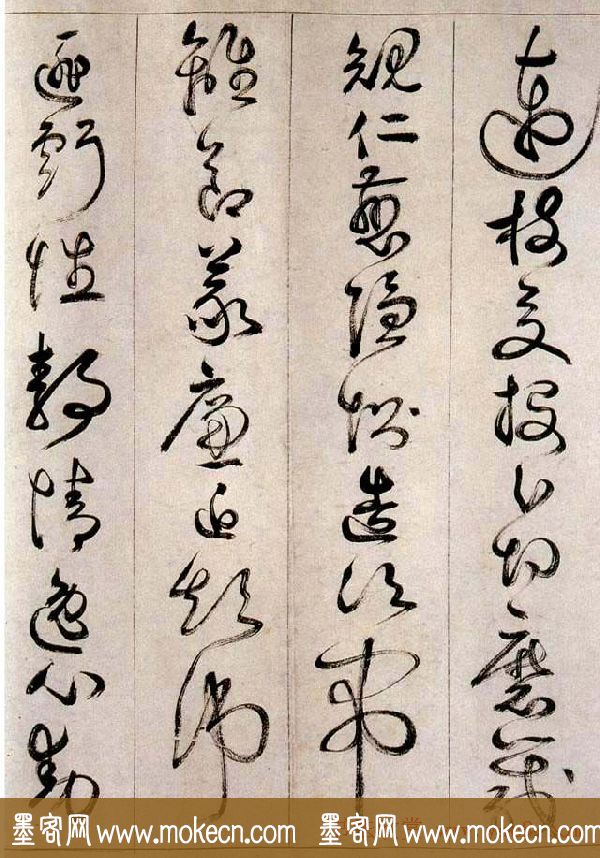 連枝交投分切磨箴
規仁慈隱惻造次弗
離節義廉退顛沛
匪虧性靜情逸心動
墨客网 www.mokecn.com 墨客网 www.mokecn.com